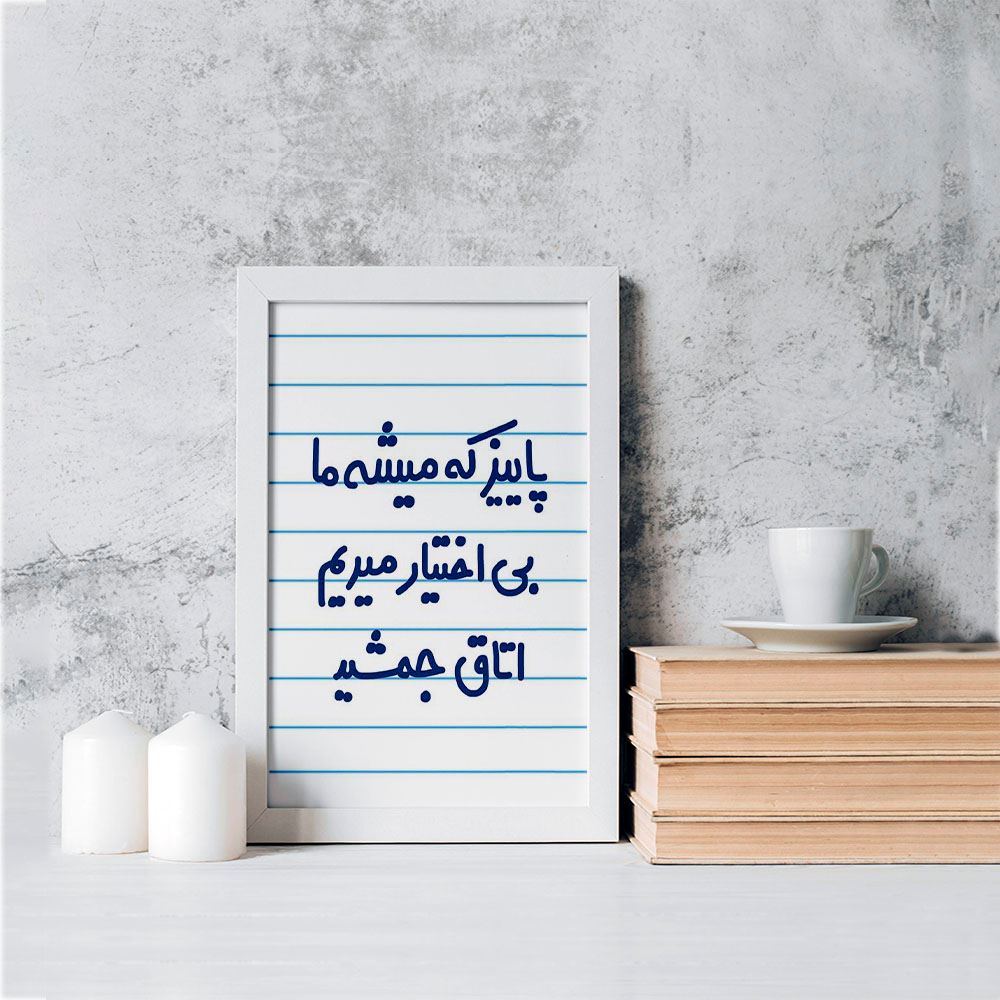 پاییز که میشه ما
بی اختیار میریم
اتاق جمشید